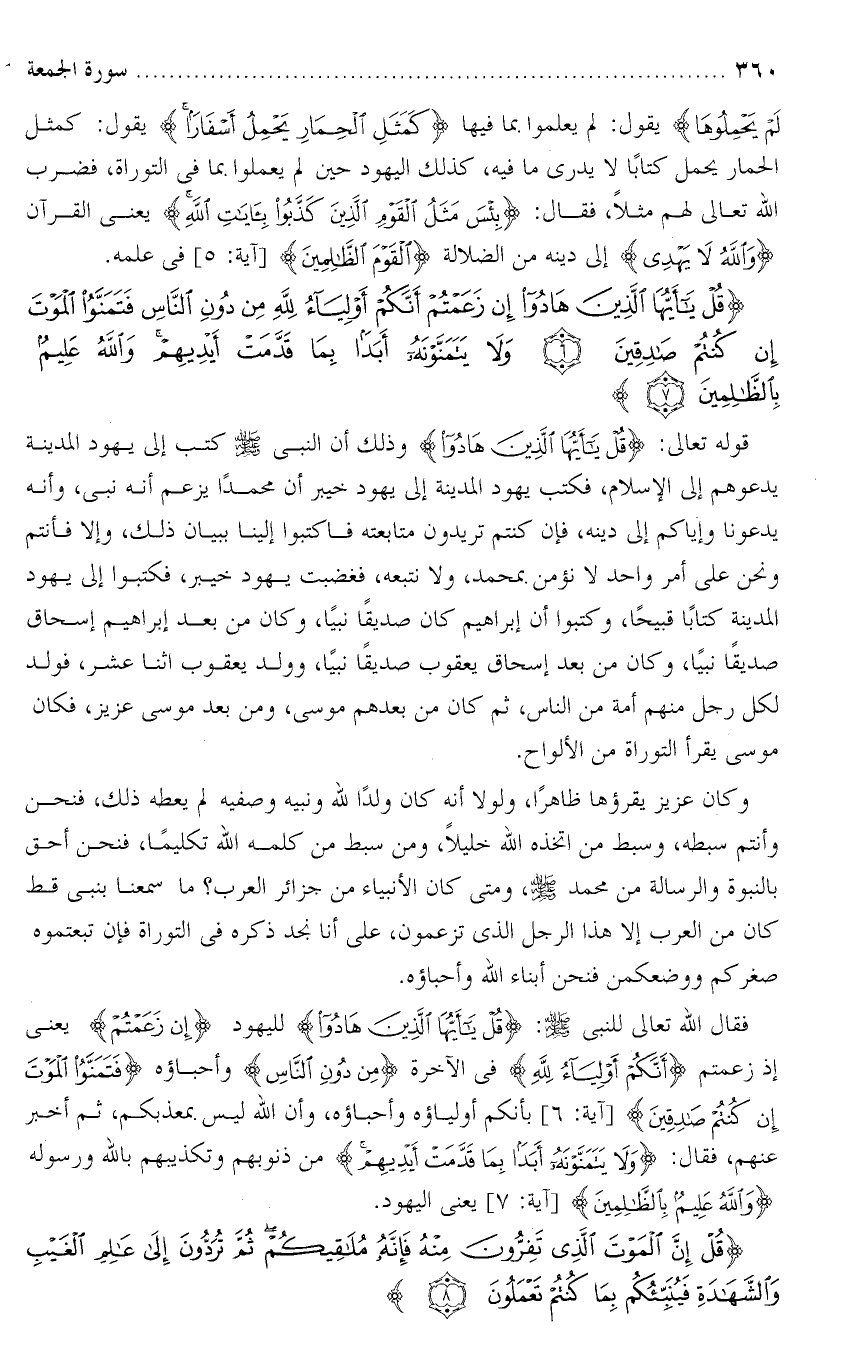 ٣٦٠ ........ سورة الجمعة
لَمْ يَحْمِلُوهَا﴾ يقول: لم يعلموا بما فيها ﴿كَمَثَلِ ٱلْحِمَارِ يَحْمِلُ أَسْفَارًۢا﴾ يقول: كمثل
الحمار يحمل كتابًا لا يدرى ما فيه، كذلك اليهود حين لم يعملوا بما فى التوراة، فضرب
الله تعالى لهم مثلاً، فقال: ﴿بِئْسَ مَثَلُ ٱلْقَوْمِ ٱلَّذِينَ كَذَّبُوا۟ بِـَٔايَـٰتِ ٱللَّهِ﴾ يعنى القرآن
﴿وَٱللَّهُ لَا يَهْدِى﴾ إلى دينه من الضلالة ﴿ٱلْقَوْمَ ٱلظَّـٰلِمِينَ﴾ [آية: ٥] فى علمه.
﴿قُلْ يَـٰٓأَيُّهَا ٱلَّذِينَ هَادُوٓا۟ إِن زَعَمْتُمْ أَنَّكُمْ أَوْلِيَآءُ لِلَّهِ مِن دُونِ ٱلنَّاسِ فَتَمَنَّوُا۟ ٱلْمَوْتَ
إِن كُنتُمْ صَـٰدِقِينَ ٦ وَلَا يَتَمَنَّوْنَهُۥٓ أَبَدًۢا بِمَا قَدَّمَتْ أَيْدِيهِمْ ۚ وَٱللَّهُ عَلِيمٌۢ
بِٱلظَّـٰلِمِينَ ٧ ﴾
قوله تعالى: ﴿قُلْ يَـٰٓأَيُّهَا ٱلَّذِينَ هَادُوٓا۟﴾ وذلك أن النبى ﷺ كتب إلى يهود المدينة
يدعوهم إلى الإسلام، فكتب يهود المدينة إلى يهود خيبر أن محمدًا يزعم أنه نبى، وأنه
يدعونا وإياكم إلى دينه، فإن كنتم تريدون متابعته فاكتبوا إلينا ببيان ذلك، وإلا فأنتم
ونحن على أمر واحد لا نؤمن بمحمد، ولا نتبعه، فغضبت يهود خيبر، فكتبوا إلى يهود
المدينة كتابًا قبيحًا، وكتبوا أن إبراهيم كان صديقًا نبيًا، وكان من بعد إبراهيم إسحاق
صديقًا نبيًا، وكان من بعد إسحاق يعقوب صديقًا نبيًا، وولد يعقوب اثنا عشر، فولد
لكل رجل منهم أمة من الناس، ثم كان من بعدهم موسى، ومن بعد موسى عزيز، فكان
موسى يقرأ التوراة من الألواح.
وكان عزيز يقرؤها ظاهرًا، ولولا أنه كان ولدًا لله ونبيه وصفيه لم يعطه ذلك، فنحن
وأنتم سبطه، وسبط من اتخذه الله خليلاً، ومن سبط من كلمه الله تكليمًا، فنحن أحق
بالنبوة والرسالة من محمد ﷺ، ومتى كان الأنبياء من جزائر العرب؟ ما سمعنا بنبى قط
كان من العرب إلا هذا الرجل الذى تزعمون، على أنا نجد ذكره فى التوراة فإن تبعتموه
صغركم ووضعكمن فنحن أبناء الله وأحباؤه.
فقال الله تعالى للنبى ﷺ: ﴿قُلْ يَـٰٓأَيُّهَا ٱلَّذِينَ هَادُوٓا۟﴾ لليهود ﴿إِن زَعَمْتُمْ﴾ يعنى
إذ زعمتم ﴿أَنَّكُمْ أَوْلِيَآءُ لِلَّهِ﴾ فى الآخرة ﴿مِن دُونِ ٱلنَّاسِ﴾ وأحباؤه ﴿فَتَمَنَّوُا۟ ٱلْمَوْتَ
إِن كُنتُمْ صَـٰدِقِينَ﴾ [آية: ٦] بأنكم أولياؤه وأحباؤه، وأن الله ليس بمعذبكم، ثم أخبر
عنهم، فقال: ﴿وَلَا يَتَمَنَّوْنَهُۥٓ أَبَدًۢا بِمَا قَدَّمَتْ أَيْدِيهِمْ ۚ﴾ من ذنوبهم وتكذيبهم بالله ورسوله
﴿وَٱللَّهُ عَلِيمٌۢ بِٱلظَّـٰلِمِينَ﴾ [آية: ٧] يعنى اليهود.
﴿قُلْ إِنَّ ٱلْمَوْتَ ٱلَّذِى تَفِرُّونَ مِنْهُ فَإِنَّهُۥ مُلَـٰقِيكُمْ ۖ ثُمَّ تُرَدُّونَ إِلَىٰ عَـٰلِمِ ٱلْغَيْبِ
وَٱلشَّهَـٰدَةِ فَيُنَبِّئُكُم بِمَا كُنتُمْ تَعْمَلُونَ ٨ ﴾